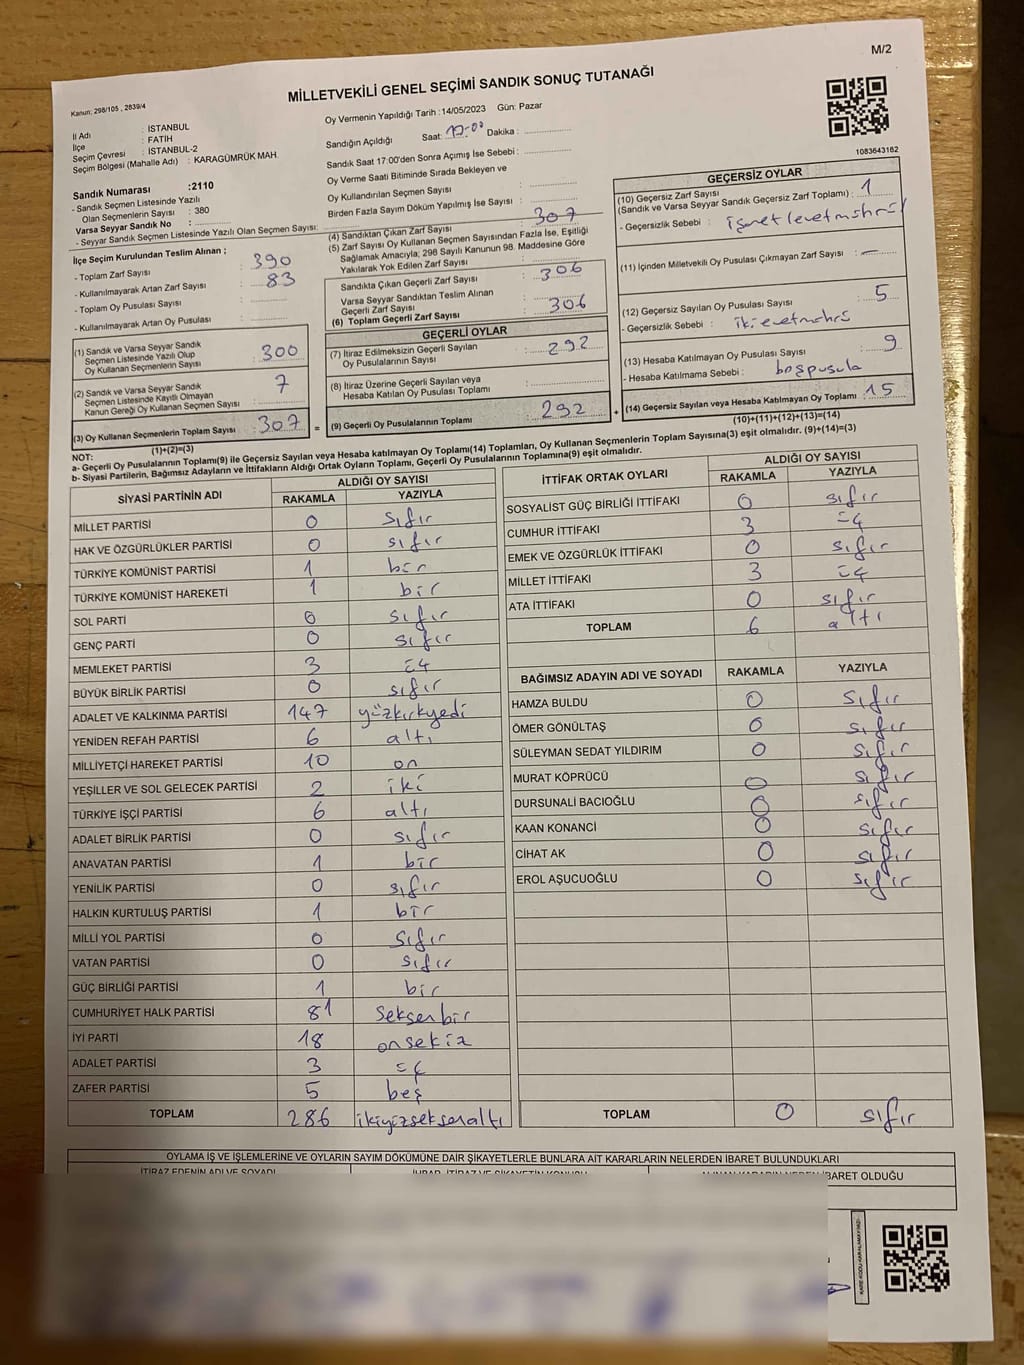 M/2
MİLLETVEKİLİ GENEL SEÇİMİ SANDIK SONUÇ TUTANAĞI
Kanun: 298/105 , 2839/4
İl Adı : İSTANBUL
İlçe : FATİH
Seçim Çevresi : İSTANBUL-2
Seçim Bölgesi (Mahalle Adı) : KARAGÜMRÜK MAH.
Sandık Numarası :2110
- Sandık Seçmen Listesinde Yazılı
Olan Seçmenlerin Sayısı : 380
Varsa Seyyar Sandık No :
- Seyyar Sandık Seçmen Listesinde Yazılı Olan Seçmen Sayısı:
İlçe Seçim Kurulundan Teslim Alınan ;
- Toplam Zarf Sayısı : 390
- Kullanılmayarak Artan Zarf Sayısı : 83
- Toplam Oy Pusulası Sayısı :
- Kullanılmayarak Artan Oy Pusulası :
(1) Sandık ve Varsa Seyyar Sandık
Seçmen Listesinde Yazılı Olup
Oy Kullanan Seçmenlerin Sayısı : 300
(2) Sandık ve Varsa Seyyar Sandık
Seçmen Listesinde Kayıtlı Olmayan
Kanun Gereği Oy Kullanan Seçmen Sayısı : 7
(3) Oy Kullanan Seçmenlerin Toplam Sayısı : 307
(1)+(2)=(3)
Oy Vermenin Yapıldığı Tarih :14/05/2023 Gün: Pazar
Sandığın Açıldığı Saat: 17.00 Dakika :
Sandık Saat 17:00'den Sonra Açımış İse Sebebi :
Oy Verme Saati Bitiminde Sırada Bekleyen ve
Oy Kullandırılan Seçmen Sayısı :
Birden Fazla Sayım Döküm Yapılmış İse Sayısı :
(4) Sandıktan Çıkan Zarf Sayısı : 307
(5) Zarf Sayısı Oy Kullanan Seçmen Sayısından Fazla İse, Eşitliği
Sağlamak Amacıyla; 298 Sayılı Kanunun 98. Maddesine Göre
Yakılarak Yok Edilen Zarf Sayısı :
Sandıkta Çıkan Geçerli Zarf Sayısı : 306
Varsa Seyyar Sandıktan Teslim Alınan
Geçerli Zarf Sayısı :
(6) Toplam Geçerli Zarf Sayısı : 306
GEÇERLİ OYLAR
(7) İtiraz Edilmeksizin Geçerli Sayılan
Oy Pusulalarının Sayısı : 292
(8) İtiraz Üzerine Geçerli Sayılan veya
Hesaba Katılan Oy Pusulası Toplamı :
(9) Geçerli Oy Pusulalarının Toplamı : 292 +
1083643162
GEÇERSİZ OYLAR
(10) Geçersiz Zarf Sayısı
(Sandık ve Varsa Seyyar Sandık Geçersiz Zarf Toplamı) : 1
- Geçersizlik Sebebi :
(11) İçinden Milletvekili Oy Pusulası Çıkmayan Zarf Sayısı : —
(12) Geçersiz Sayılan Oy Pusulası Sayısı : 5
- Geçersizlik Sebebi : iki evet mührü
(13) Hesaba Katılmayan Oy Pusulası Sayısı : 9
- Hesaba Katılmama Sebebi : boş pusula
(14) Geçersiz Sayılan veya Hesaba Katılmayan Oy Toplamı : 15
(10)+(11)+(12)+(13)=(14)
NOT:
a- Geçerli Oy Pusulalarının Toplamı(9) ile Geçersiz Sayılan veya Hesaba katılmayan Oy Toplamı(14) Toplamları, Oy Kullanan Seçmenlerin Toplam Sayısına(3) eşit olmalıdır. (9)+(14)=(3)
b- Siyasi Partilerin, Bağımsız Adayların ve İttifakların Aldığı Ortak Oyların Toplamı, Geçerli Oy Pusulalarının Toplamına(9) eşit olmalıdır.
SİYASİ PARTİNİN ADI ALDIĞI OY SAYISI
RAKAMLA YAZIYLA
MİLLET PARTİSİ 0 sıfır
HAK VE ÖZGÜRLÜKLER PARTİSİ 0 sıfır
TÜRKİYE KOMÜNİST PARTİSİ 1 bir
TÜRKİYE KOMÜNİST HAREKETİ 1 bir
SOL PARTİ 0 sıfır
GENÇ PARTİ 0 sıfır
MEMLEKET PARTİSİ 3 üç
BÜYÜK BİRLİK PARTİSİ 0 sıfır
ADALET VE KALKINMA PARTİSİ 147 yüzkırkyedi
YENİDEN REFAH PARTİSİ 6 altı
MİLLİYETÇİ HAREKET PARTİSİ 10 on
YEŞİLLER VE SOL GELECEK PARTİSİ 2 iki
TÜRKİYE İŞÇİ PARTİSİ 6 altı
ADALET BİRLİK PARTİSİ 0 sıfır
ANAVATAN PARTİSİ 1 bir
YENİLİK PARTİSİ 0 sıfır
HALKIN KURTULUŞ PARTİSİ 1 bir
MİLLİ YOL PARTİSİ 0 sıfır
VATAN PARTİSİ 0 sıfır
GÜÇ BİRLİĞİ PARTİSİ 1 bir
CUMHURİYET HALK PARTİSİ 81 seksenbir
İYİ PARTİ 18 onsekiz
ADALET PARTİSİ 3 üç
ZAFER PARTİSİ 5 beş
TOPLAM 286 ikiyüzseksenaltı
İTTİFAK ORTAK OYLARI ALDIĞI OY SAYISI
RAKAMLA YAZIYLA
SOSYALİST GÜÇ BİRLİĞİ İTTİFAKI 0 sıfır
CUMHUR İTTİFAKI 3 üç
EMEK VE ÖZGÜRLÜK İTTİFAKI 0 sıfır
MİLLET İTTİFAKI 3 üç
ATA İTTİFAKI 0 sıfır
TOPLAM 6 altı
BAĞIMSIZ ADAYIN ADI VE SOYADI RAKAMLA YAZIYLA
HAMZA BULDU 0 sıfır
ÖMER GÖNÜLTAŞ 0 sıfır
SÜLEYMAN SEDAT YILDIRIM 0 sıfır
MURAT KÖPRÜCÜ 0 sıfır
DURSUNALİ BACIOĞLU 0 sıfır
KAAN KONANCİ 0 sıfır
CİHAT AK 0 sıfır
EROL AŞUCUOĞLU 0 sıfır
TOPLAM 0 sıfır
OYLAMA İŞ VE İŞLEMLERİNE VE OYLARIN SAYIM DÖKÜMÜNE DAİR ŞİKAYETLERLE BUNLARA AİT KARARLARIN NELERDEN İBARET BULUNDUKLARI
İTİRAZ EDENİN ADI VE SOYADI
BARET OLDUĞU